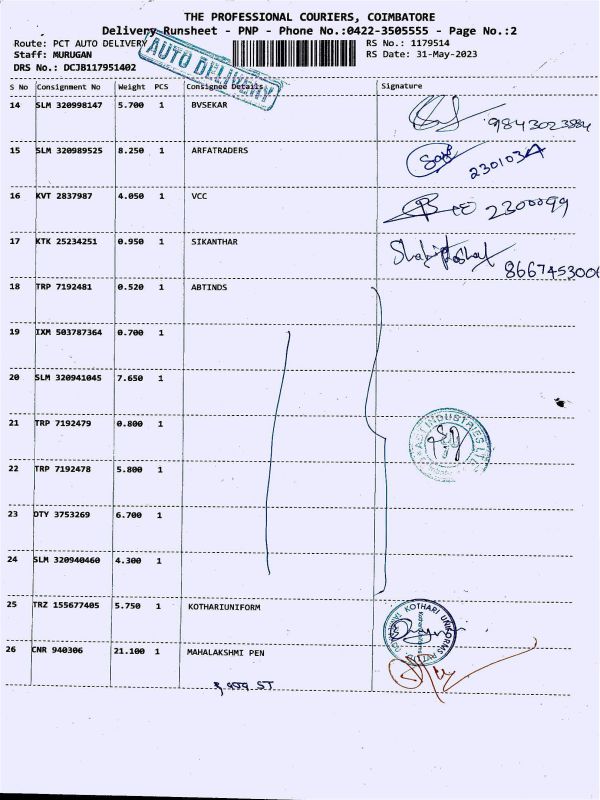 THE PROFESSIONAL COURIERS, COIMBATORE
Delivery Runsheet - PNP - Phone No.:0422-3505555 - Page No.:2
Route: PCT AUTO DELIVERY
RS No.: 1179514
Staff: MURUGAN
RS Date: 31-May-2023
DRS No.: DCJB117951402
AUTO DELIVERY
S No Consignment No Weight PCS Consignee Details Signature
14 SLM 320998147 5.700 1 BVSEKAR
9843023884
15 SLM 320989525 8.250 1 ARFATRADERS
230103A
16 KVT 2837987 4.050 1 VCC
2300099
17 KTK 25234251 0.950 1 SIKANTHAR
8667453006
18 TRP 7192481 0.520 1 ABTINDS
19 IXM 503787364 0.700 1
20 SLM 320941045 7.650 1
21 TRP 7192479 0.800 1
INDUSTRIES
22 TRP 7192478 5.800 1
23 DTY 3753269 6.700 1
24 SLM 320940460 4.300 1
25 TRZ 155677405 5.750 1 KOTHARIUNIFORM
KOTHARI UNIFORMS
26 CNR 940306 21.100 1 MAHALAKSHMI PEN
ST